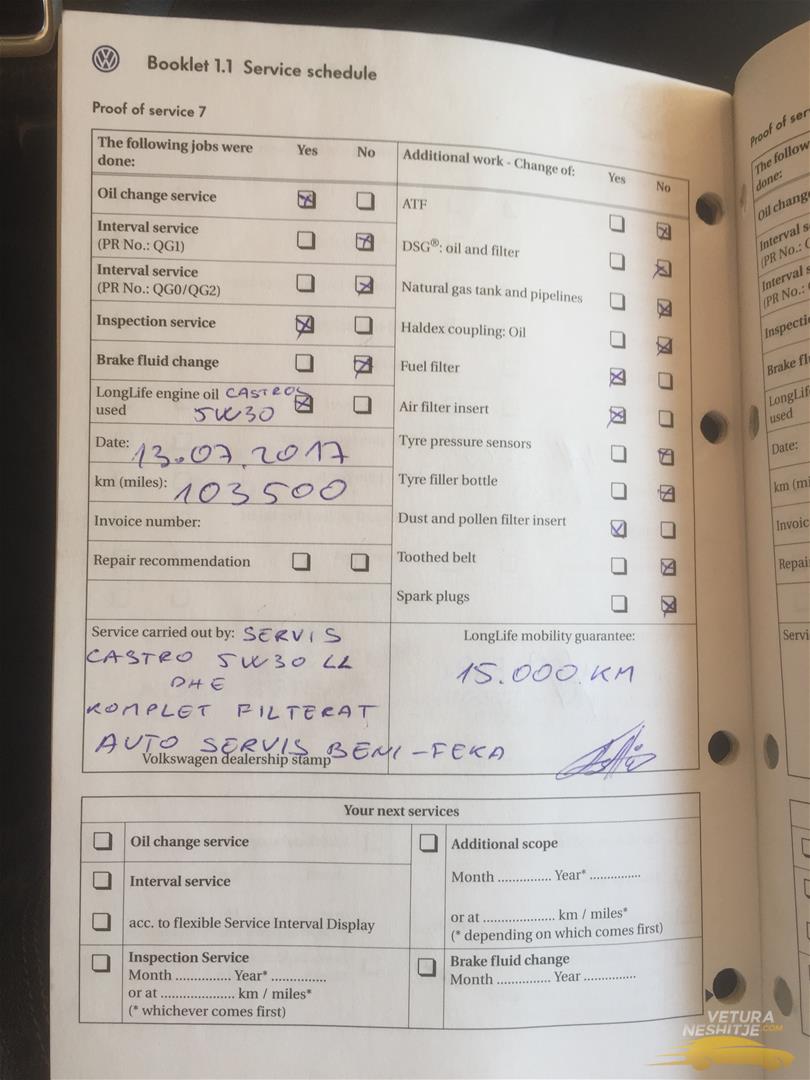 Booklet 1.1 Service schedule
Proof of service 7
The following jobs were done:
Yes
No
Oil change service
Interval service
(PR No.: QG1)
Interval service
(PR No.: QG0/QG2)
Inspection service
Brake fluid change
LongLife engine oil CASTROL
used 5W30
Date: 13.07.2017
km (miles): 103500
Invoice number:
Repair recommendation
Additional work - Change of:
Yes
No
ATF
DSG®: oil and filter
Natural gas tank and pipelines
Haldex coupling: Oil
Fuel filter
Air filter insert
Tyre pressure sensors
Tyre filler bottle
Dust and pollen filter insert
Toothed belt
Spark plugs
Service carried out by: SERVIS
CASTRO 5W30 LL
DHE
KOMPLET FILTERAT
AUTO SERVIS BENI-FEKA
Volkswagen dealership stamp
LongLife mobility guarantee:
15.000 KM
Your next services
Oil change service
Interval service
acc. to flexible Service Interval Display
Inspection Service
Month ............... Year* ...............
or at .................... km / miles*
(* whichever comes first)
Additional scope
Month ............... Year* ...............
or at .................... km / miles*
(* depending on which comes first)
Brake fluid change
Month ............... Year ...............
Proof of ser
The follow
done:
Oil chang
Interval s
(PR No.: Q
Interval s
(PR No.:
Inspecti
Brake fl
LongLif
used
Date:
km (mi
Invoic
Repai
Servi
VETURA
NESHITJE.COM